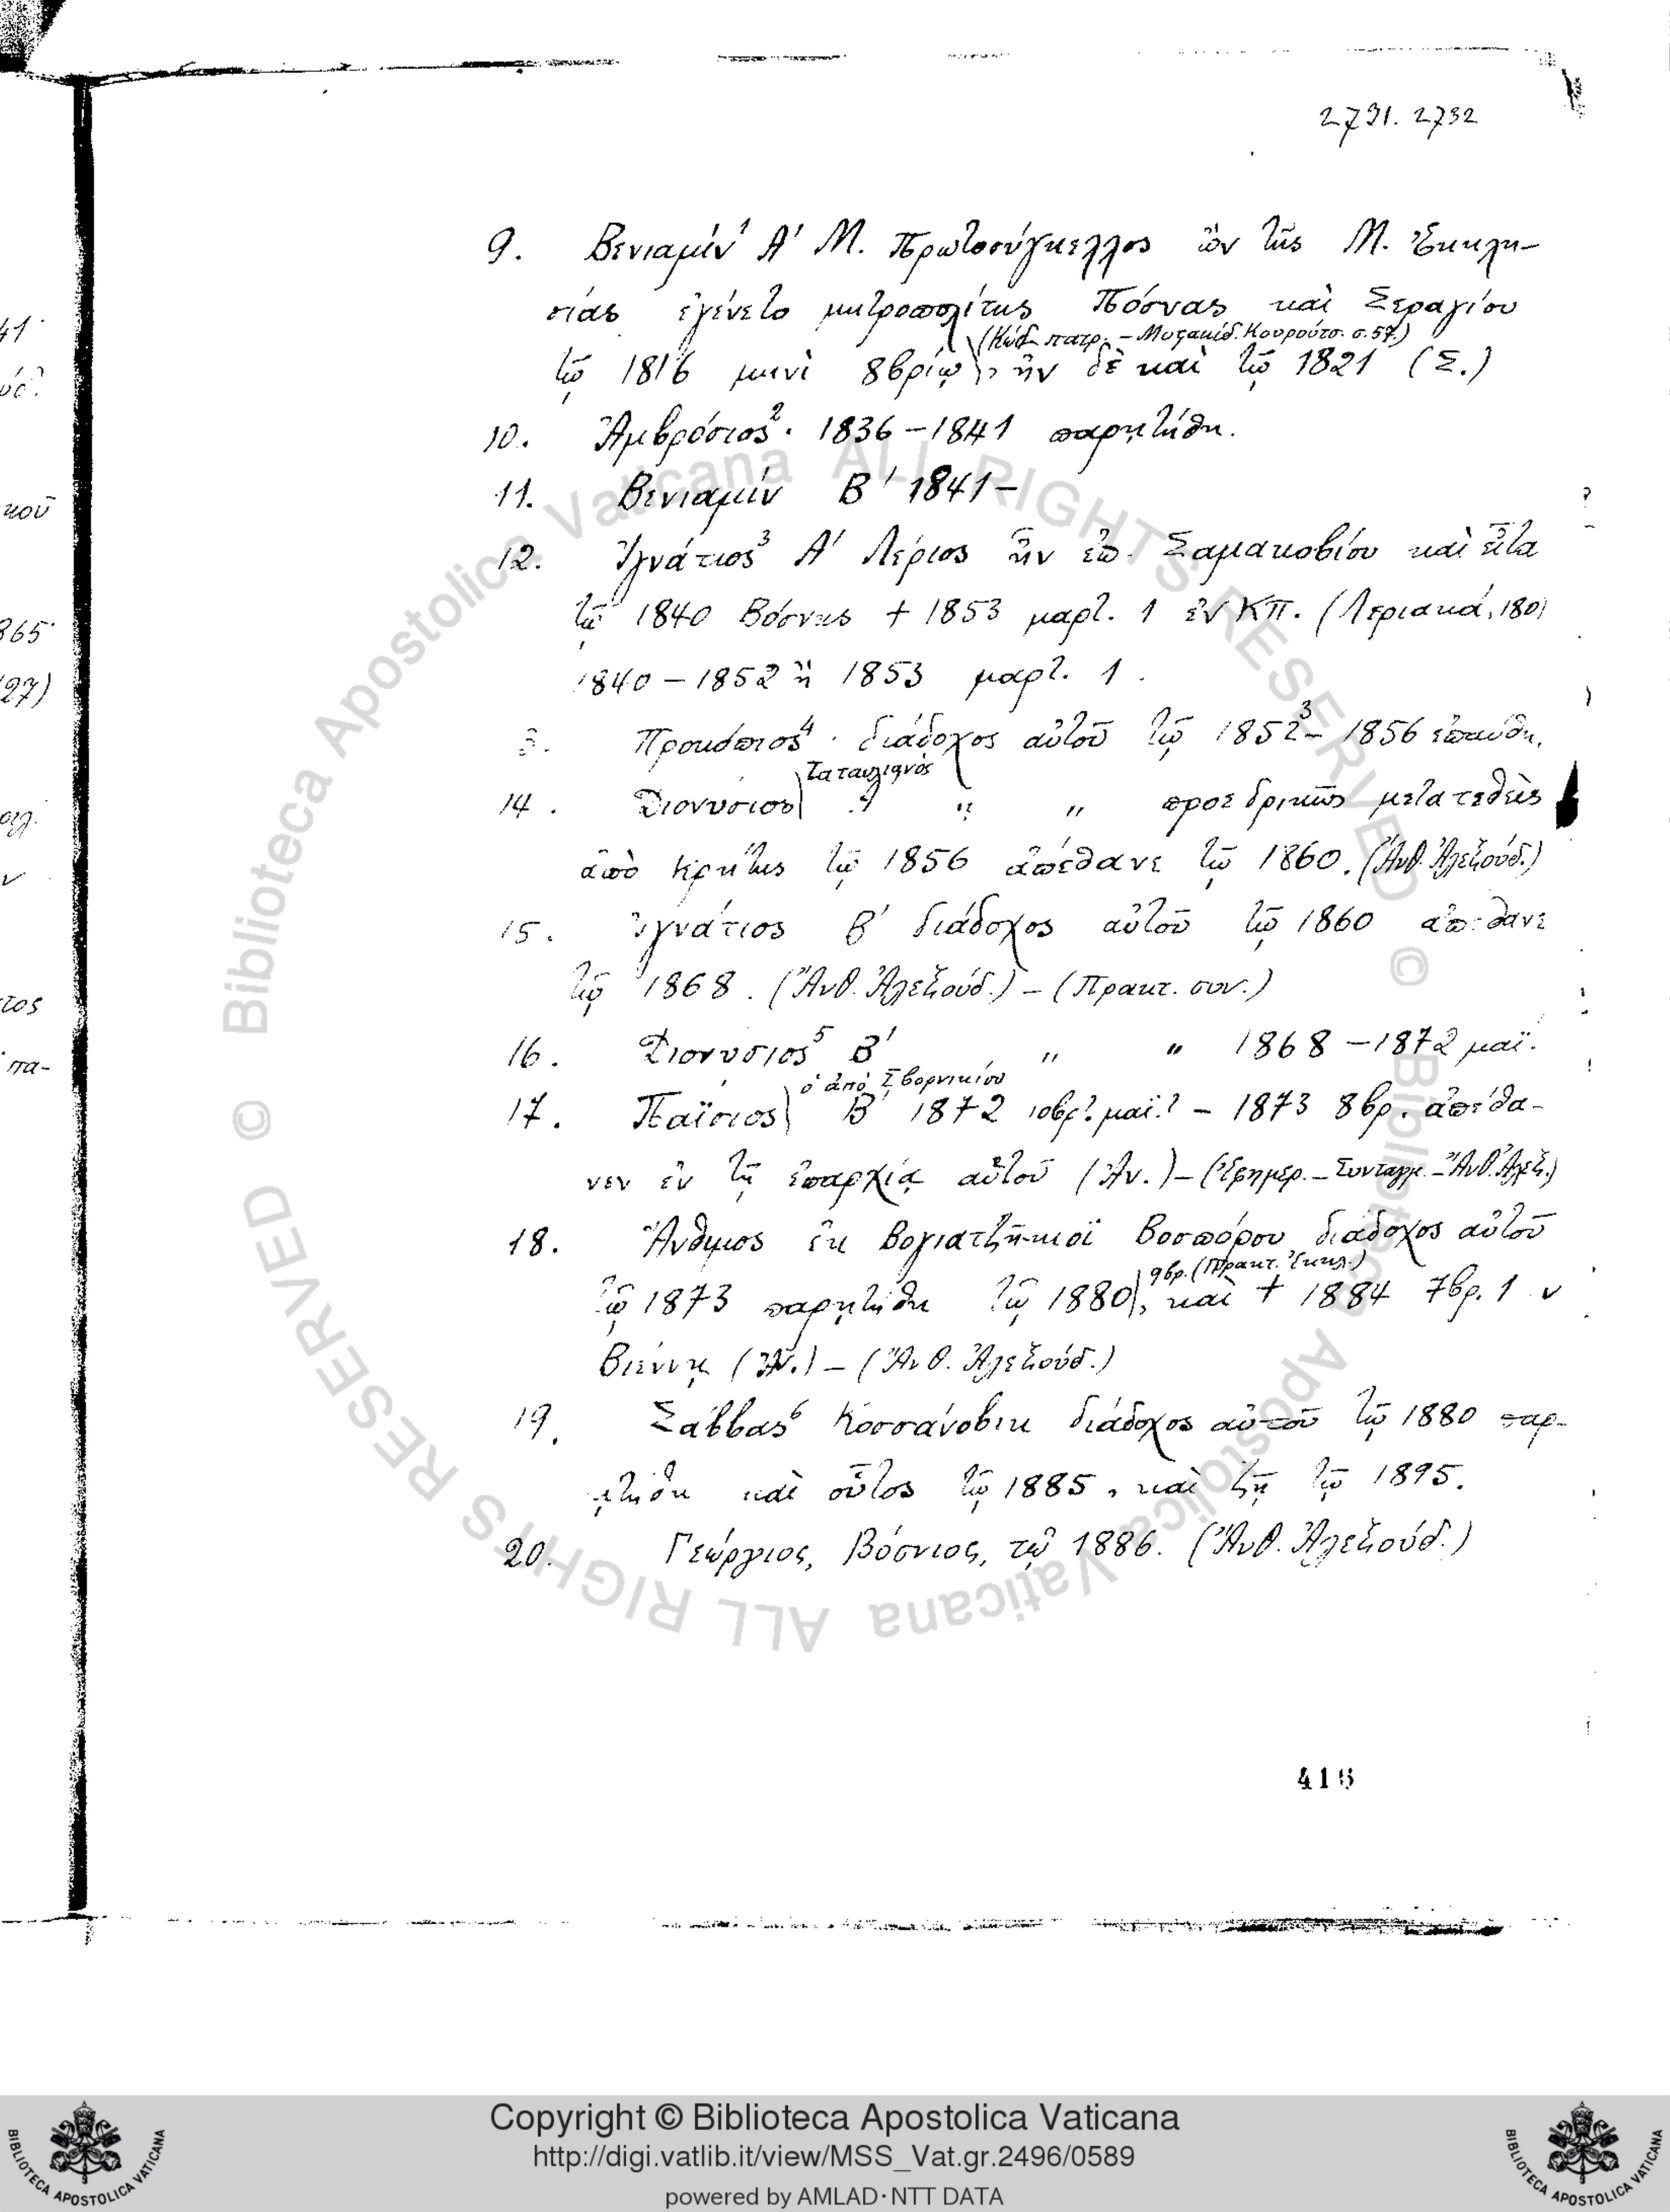 2731. 2732
9. Βενιαμίν¹ Α' Μ. Πρωτοσύγκελλος ὢν τῆς Μ. Ἐκκλη-
σίας ἐγένετο μητροπολίτης Πόσνας καὶ Σεραγίου
(Κώδ. πατρ. – Μυστακίδ. Κουρούτσ. σ. 57.)
τῷ 1816 μηνὶ 8βρίῳ, ἦν δὲ καὶ τῷ 1821 (Σ.)
10. Ἀμβρόσιος². 1836–1841 παρητήθη.
11. Βενιαμίν Β' 1841–
12. Ἰγνάτιος³ Α' Λέριος ἦν ἐπ. Σαμακοβίου καὶ εἶτα
τῷ 1840 Βόσνης + 1853 μαρτ. 1 ἐν ΚΠ. (Λεριακά, 180)
1840–1852 ἢ 1853 μαρτ. 1.
3. Προκόπιος⁴. διάδοχος αὐτοῦ τῷ 1852³– 1856 ἐπαύθη.
Ταταυλιανός
14. Διονύσιος " " προεδρικῶς μετατεθεὶς
ἀπὸ Κρήτης τῷ 1856 ἀπέθανε τῷ 1860. (Ἀνθ. Ἀλεξούδ.)
15. Ἰγνάτιος Β' διάδοχος αὐτοῦ τῷ 1860 ἀπέθανε
τῷ 1868. (Ἀνθ. Ἀλεξούδ.) – (Πρακτ. συν.)
16. Διονύσιος⁵ Β' " " 1868–1872 μαΐ.
ὁ ἀπὸ Σβορνικίου
17. Παΐσιος Β' 1872 10βρ? μαΐ? – 1873 8βρ. ἀπέθα-
νεν ἐν τῇ ἐπαρχίᾳ αὐτοῦ (Ἀν.) – (Ἐφημερ. – Συνταγμ. – Ἀνθ. Ἀλεξ.)
18. Ἄνθιμος ἐκ Βογιατζῆ-κιοϊ Βοσπόρου διάδοχος αὐτοῦ
9βρ. (Πρακτ. Ἐκκλ.)
τῷ 1873 παρητήθη τῷ 1880, καὶ + 1884 7βρ. 1 ν
Βιέννῃ (Ἀν.) – (Ἀνθ. Ἀλεξούδ.)
19. Σάββας⁶ Κοσσάνοβικ διάδοχος αὐτοῦ τῷ 1880 παρ-
ητήθη καὶ οὗτος τῷ 1885, καὶ ζῇ τῷ 1895.
20. Γεώργιος, Βόσνιος, τῷ 1886. (Ἀνθ. Ἀλεξούδ.)
416
© Biblioteca Apostolica Vaticana ALL RIGHTS RESERVED © Biblioteca Apostolica Vaticana ALL RIGHTS RESERVED
Copyright © Biblioteca Apostolica Vaticana
http://digi.vatlib.it/view/MSS_Vat.gr.2496/0589
powered by AMLAD·NTT DATA
BIBLIOTECA APOSTOLICA VATICANA
BIBLIOTECA APOSTOLICA VATICANA